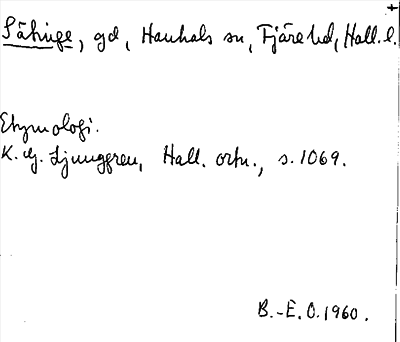 Såhuge, gd, Hanhals sn, Fjäre hd, Hall. l.
Etymologi.
K. G. Ljunggren, Hall. ortn., s. 1069.
B.-E. O. 1960.